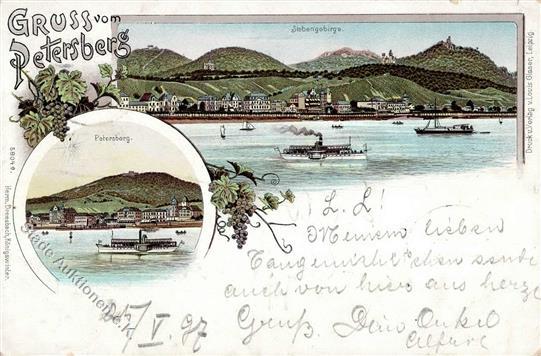 GRUSS vom
Petersberg
Siebengebirge.
Petersberg.
Druck u. Verlag v. Louis Glaser, Leipzig.
5904 e.
Herm. Dreesbach, Königswinter.
L. L!
Meinem lieben
sende
auch von hier aus herzl
Gruß. Dein Onkel
Alfred
25/V. 97